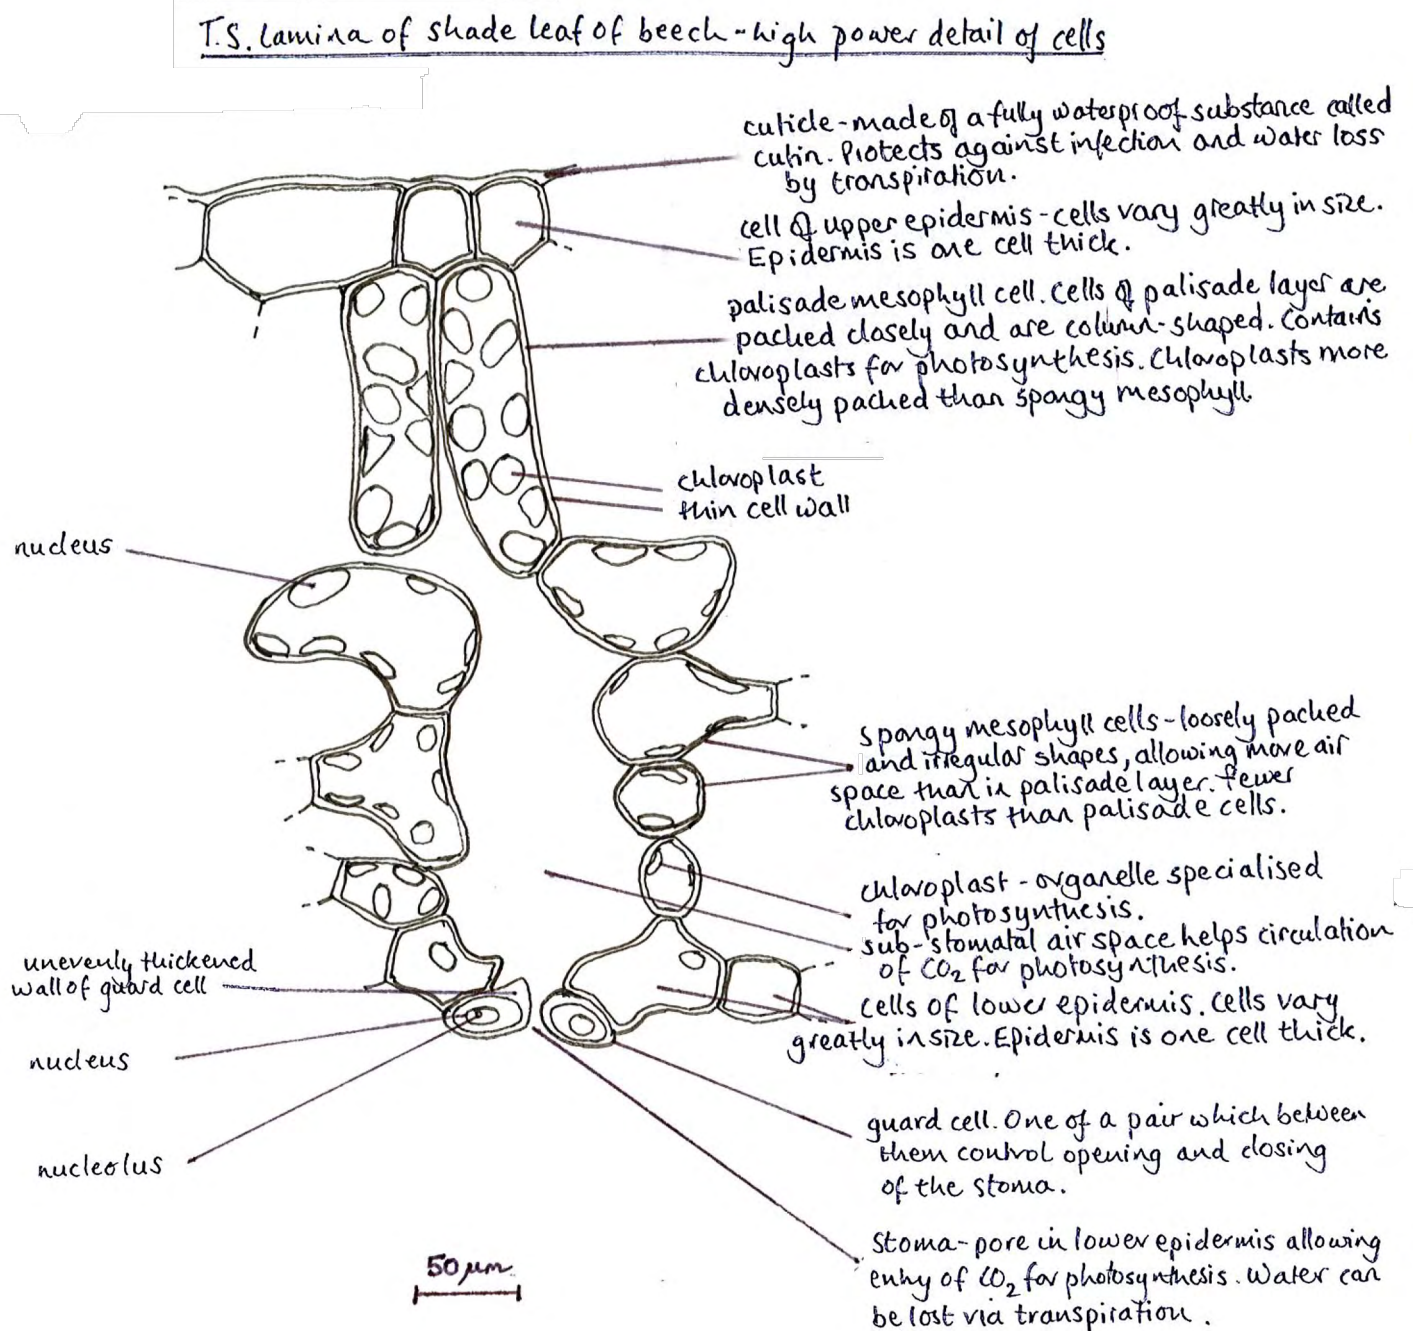 T.S. Lamina of shade leaf of beech - high power detail of cells
cuticle - made of a fully waterproof substance called
cutin. Protects against infection and water loss
by transpiration.
cell of upper epidermis - cells vary greatly in size.
Epidermis is one cell thick.
palisade mesophyll cell. Cells of palisade layer are
packed closely and are column-shaped. Contains
chloroplasts for photosynthesis. Chloroplasts more
densely packed than spongy mesophyll.
chloroplast
thin cell wall
nucleus
spongy mesophyll cells - loosely packed
and irregular shapes, allowing more air
space than in palisade layer. Fewer
chloroplasts than palisade cells.
chloroplast - organelle specialised
for photosynthesis.
sub-stomatal air space helps circulation
of CO₂ for photosynthesis.
unevenly thickened
wall of guard cell
cells of lower epidermis. Cells vary
greatly in size. Epidermis is one cell thick.
nucleus
guard cell. One of a pair which between
them control opening and closing
of the stoma.
nucleolus
Stoma - pore in lower epidermis allowing
entry of CO₂ for photosynthesis. Water can
be lost via transpiration.
50 µm